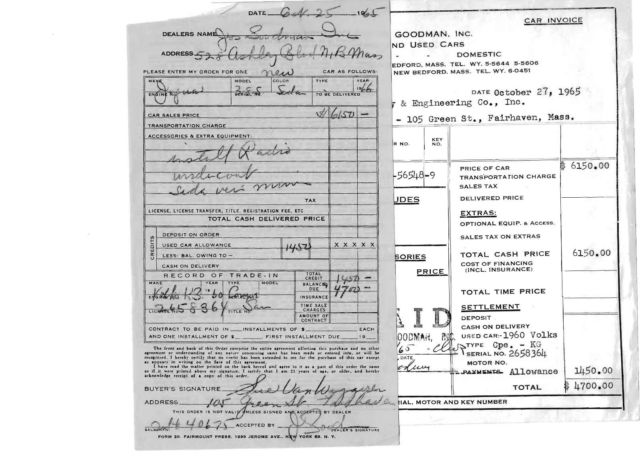 DATE Oct. 25 1965
DEALERS NAME Jos Goodman Inc
ADDRESS 528 Ashley Blvd N, B Mass
PLEASE ENTER MY ORDER FOR ONE new CAR AS FOLLOWS:
MAKE MODEL COLOR TYPE YEAR
Jaguar 3.8S Sedan 1966
TO BE DELIVERED
CAR SALES PRICE 6150 -
TRANSPORTATION CHARGE
ACCESSORIES & EXTRA EQUIPMENT:
install Radio
undercoat
Side view mirror
TAX
LICENSE, LICENSE TRANSFER, TITLE, REGISTRATION FEE, ETC
TOTAL CASH DELIVERED PRICE
CREDITS
DEPOSIT ON ORDER
USED CAR ALLOWANCE 1450 X X X X X
LESS: BAL. OWING TO -
CASH ON DELIVERY
RECORD OF TRADE-IN TOTAL CREDIT 1450 -
MAKE YEAR TYPE MODEL BALANCE DUE 4700 -
'60
INSURANCE
2658364
TIME SALE CHARGES
AMOUNT OF CONTRACT
CONTRACT TO BE PAID IN INSTALLMENTS OF $ EACH
AND ONE INSTALLMENT OF $ FIRST INSTALLMENT DUE 19
The front and back of this Order comprise the entire agreement affecting this purchase and no other
agreement or understanding of any nature concerning same has been made or entered into, or will be
recognized. I hereby certify that no credit has been extended to me for the purchase of this car except
as appears in writing on the face of this agreement.
I have read the matter printed on the back hereof and agree to it as a part of this order the same
as if it were printed above my signature. I certify that I am 21 years of age, or older, and hereby
acknowledge receipt of a copy of this order.
BUYER'S SIGNATURE
ADDRESS 105 Green St Fairhaven
THIS ORDER IS NOT VALID UNLESS SIGNED AND ACCEPTED BY DEALER
ACCEPTED BY
DEALER'S SIGNATURE
FORM 20 FAIRMOUNT PRESS, 1295 JEROME AVE., NEW YORK 52, N. Y.
CAR INVOICE
GOODMAN, INC.
ND USED CARS
DOMESTIC
EDFORD, MASS. TEL. WY. 5-5644 5-5606
NEW BEDFORD, MASS. TEL. WY. 6-0451
DATE October 27, 1965
& Engineering Co., Inc.
- 105 Green St., Fairhaven, Mass.
R NO. KEY NO.
-56548-9
UDES
SORIES
PRICE
PRICE OF CAR $ 6150.00
TRANSPORTATION CHARGE
SALES TAX
DELIVERED PRICE
EXTRAS:
OPTIONAL EQUIP. & ACCESS.
SALES TAX ON EXTRAS
TOTAL CASH PRICE 6150.00
COST OF FINANCING
(INCL. INSURANCE)
TOTAL TIME PRICE
SETTLEMENT
DEPOSIT
CASH ON DELIVERY
USED CAR-1960 Volks
TYPE Cpe. - KG
SERIAL NO. 2658364
MOTOR NO.
PAYMENTS Allowance 1450.00
TOTAL $ 4700.00
AID
OODMAN, INC.
DATE
IAL, MOTOR AND KEY NUMBER